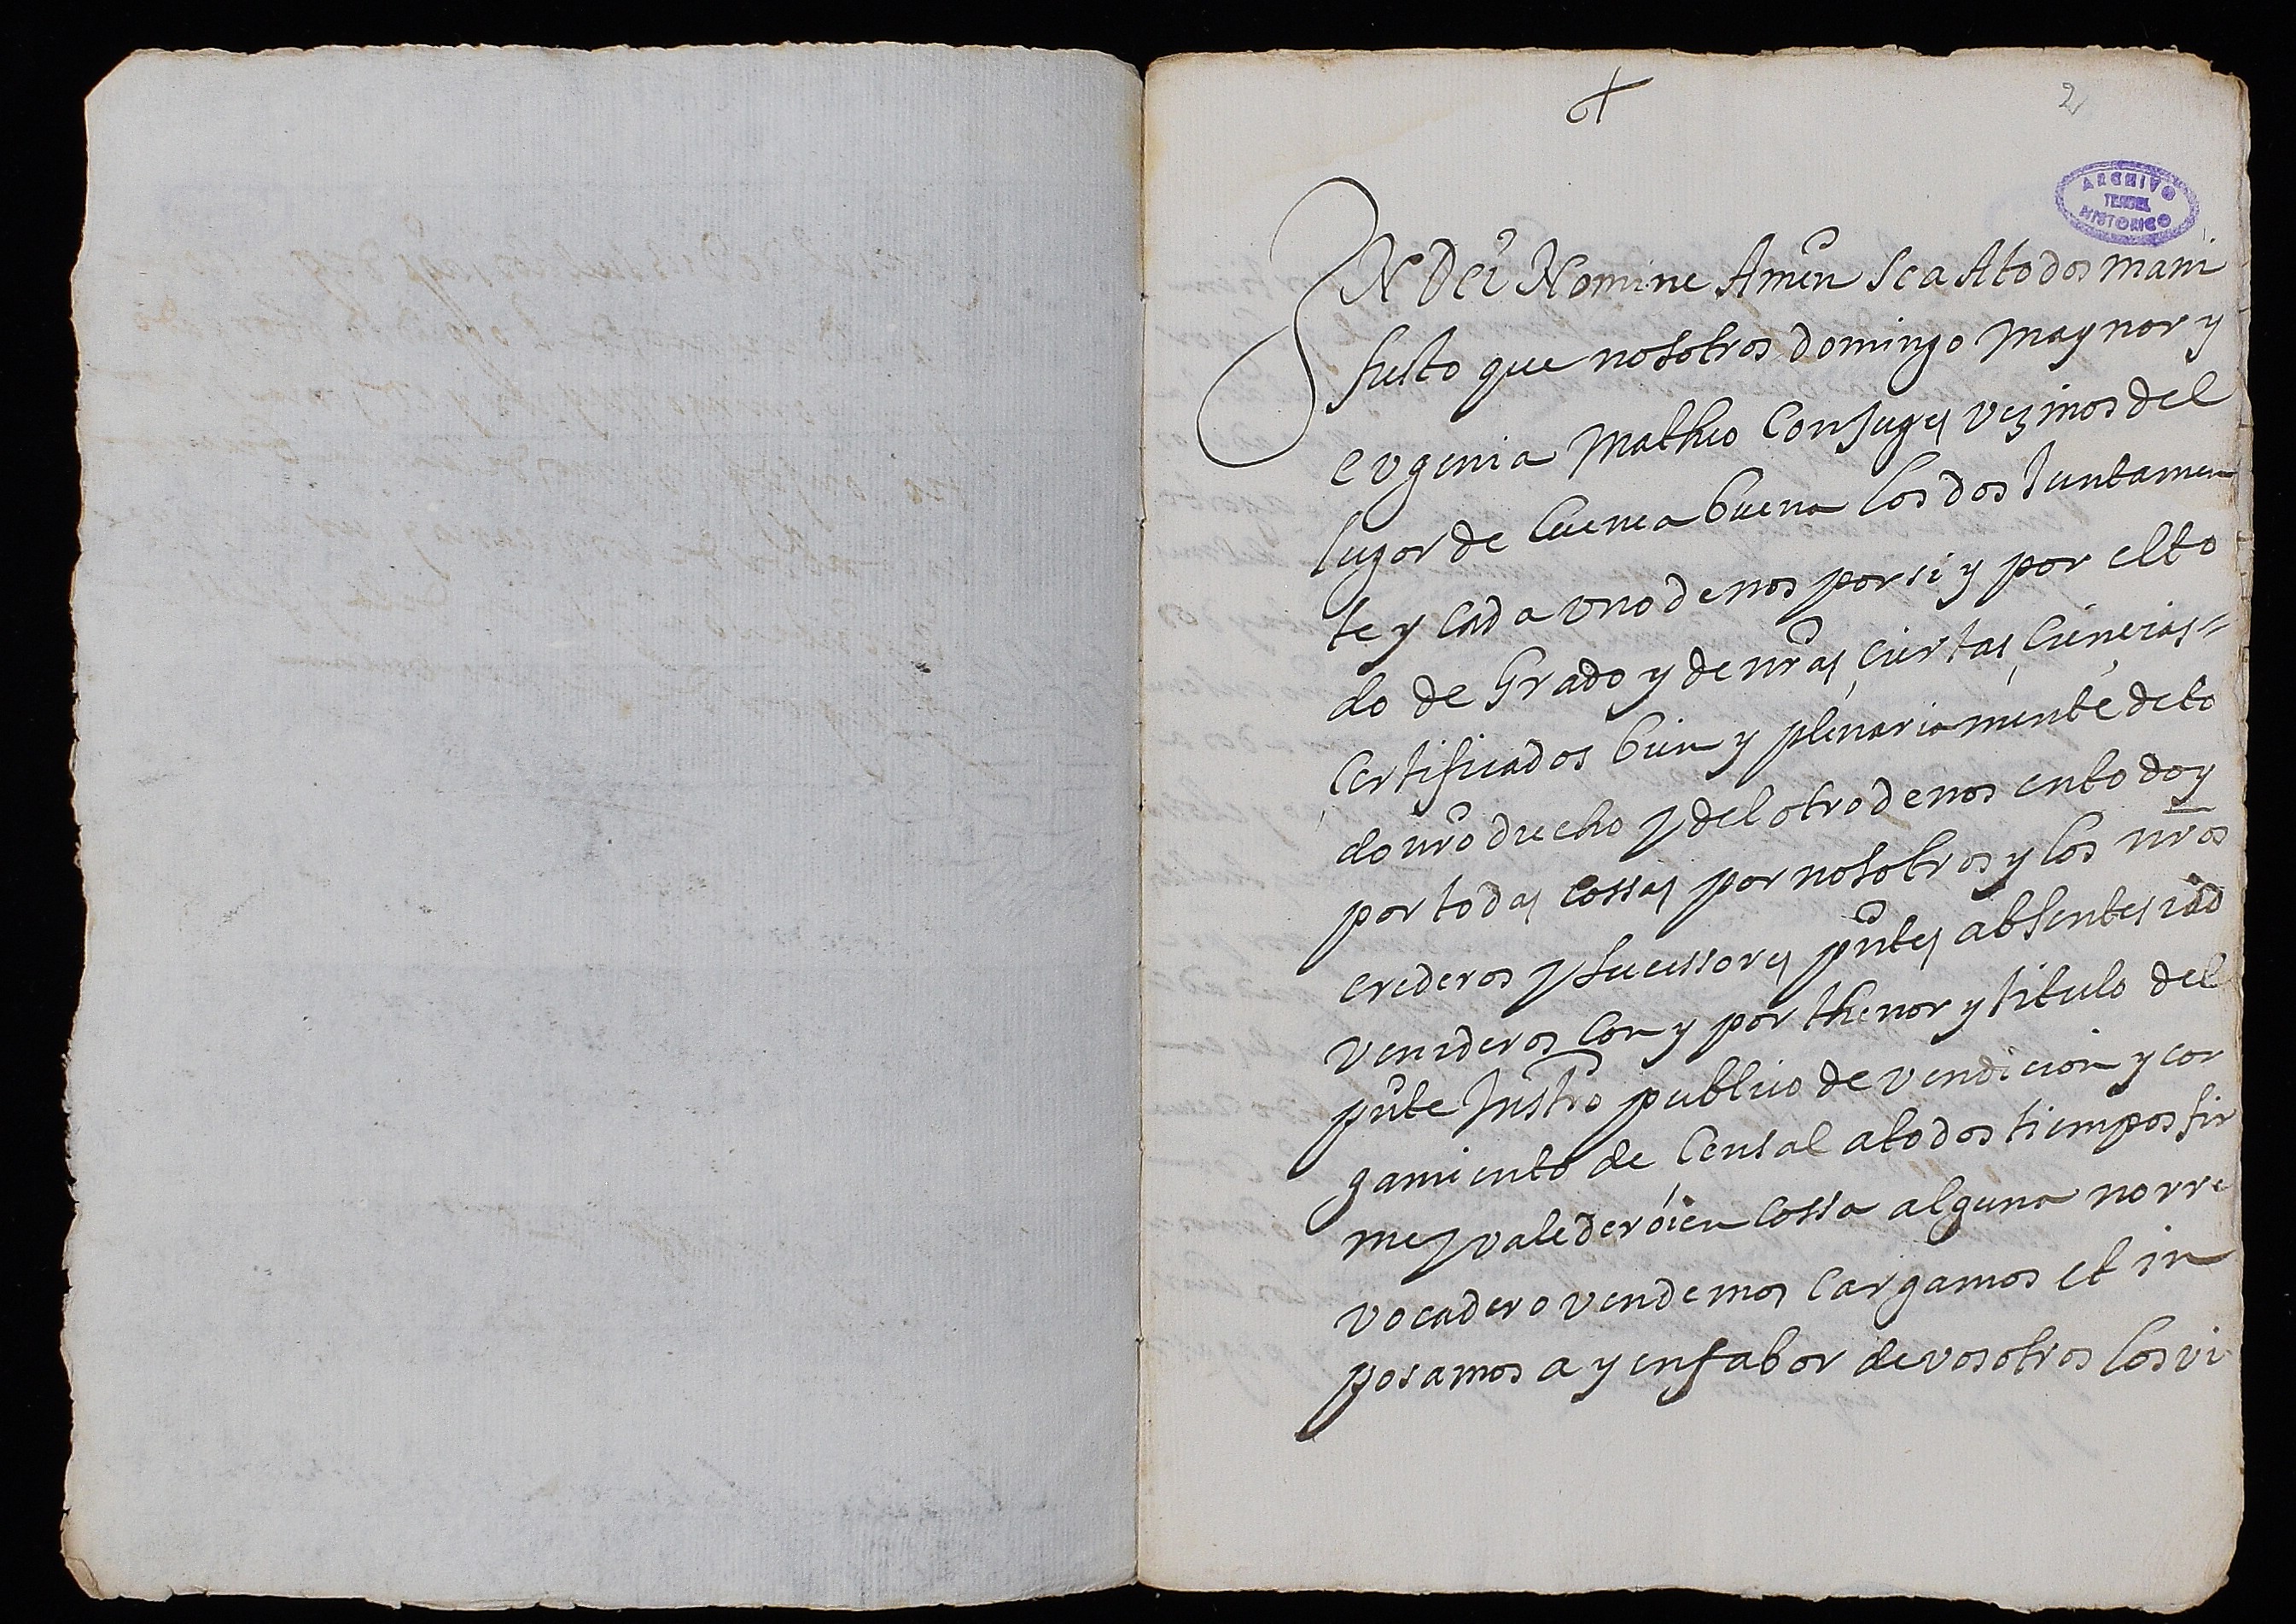 2
ARCHIVO
TERUEL
HISTORICO
IN Dei Nomine Amen Sea Atodos mani
fiesto que nosotros domingo maynar y
eugenia Matheo Conjuges vezinos del
lugar de Cuenca buena los dos Juntamen
te y cada uno de nos por si y por el to
do de Grado y de nr̃as ciertas ciencias
certificados bien y plenariamente de to
do nr̃o drecho y del otro de nos en todo y
por todas cossas por nosotros y los nr̃os
erederos y sucessores pñtes absentes i ad
venideros con y por thenor y titulo del
pñte Instr̃o publico de vendicion y car
gamiento de Censal a todos tiempos fir
me y valedero i en cossa alguna no rre
vocadero vendemos cargamos et in
posamos a y en fabor de vosotros los vi